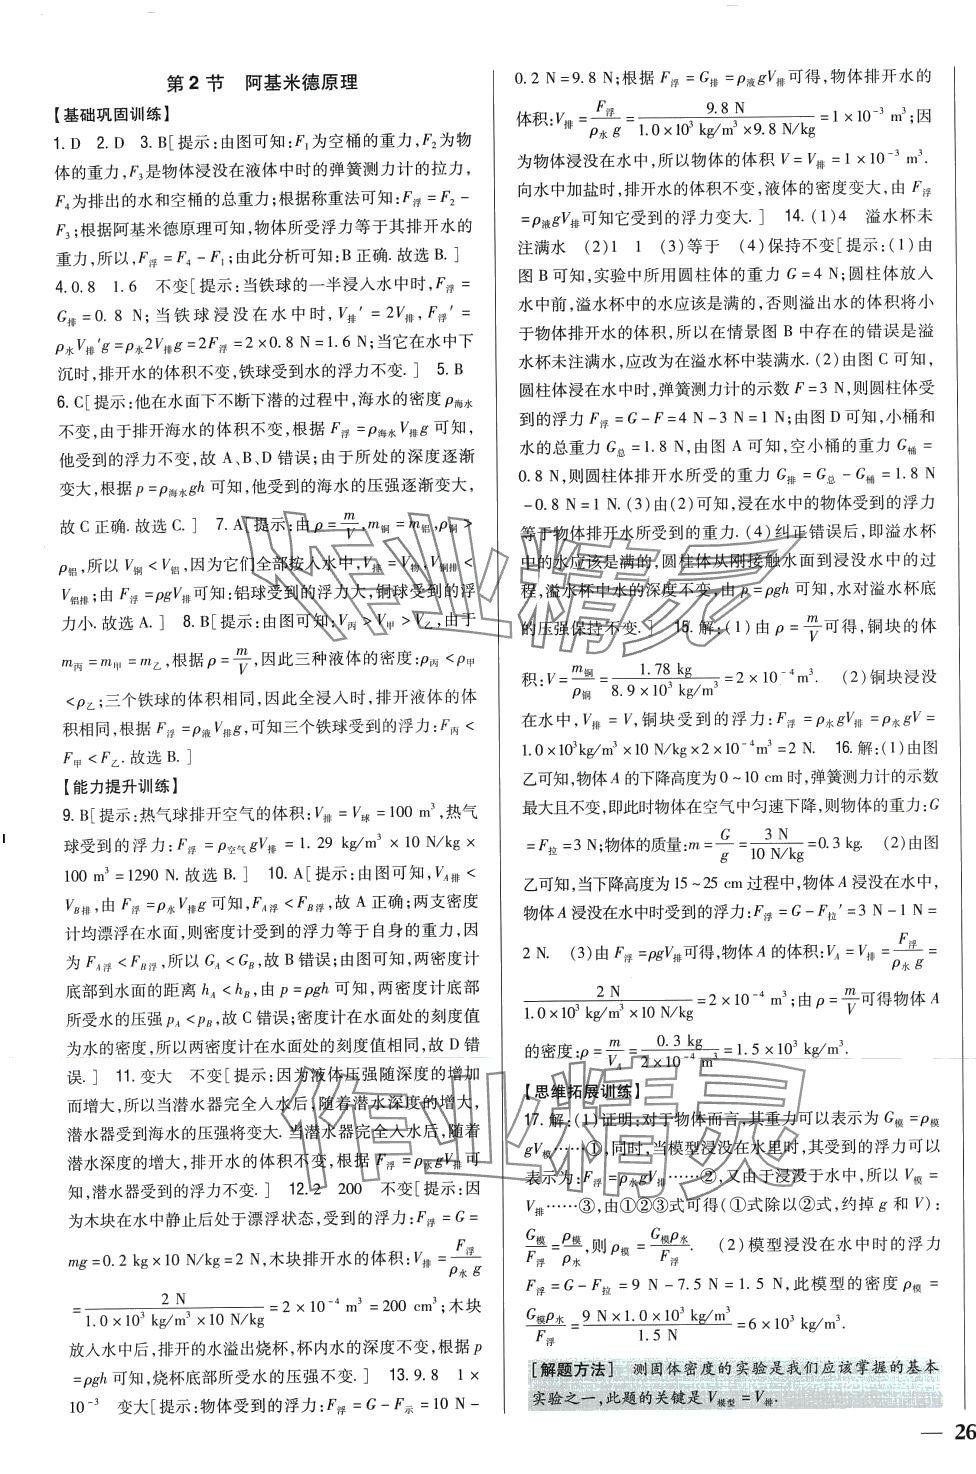 第 2 节　阿基米德原理
【基础巩固训练】
1. D　2. D　3. B[提示:由图可知:F₁为空桶的重力,F₂为物
体的重力,F₃是物体浸没在液体中时的弹簧测力计的拉力,
F₄为排出的水和空桶的总重力;根据称重法可知:F浮=F₂-
F₃;根据阿基米德原理可知,物体所受浮力等于其排开水的
重力,所以,F浮=F₄-F₁;由此分析可知:B正确.故选B.]
4. 0.8　1.6　不变[提示:当铁球的一半浸入水中时,F浮=
G排=0.8 N;当铁球浸没在水中时,V排′=2V排,F浮′=
ρ水V排′g=ρ水2V排g=2F浮=2×0.8 N=1.6 N;当它在水中下
沉时,排开水的体积不变,铁球受到水的浮力不变.]　5. B
6. C[提示:他在水面下不断下潜的过程中,海水的密度ρ海水
不变,由于排开海水的体积不变,根据F浮=ρ海水V排g可知,
他受到的浮力不变,故A、B、D错误;由于所处的深度逐渐
变大,根据p=ρ海水gh可知,他受到的海水的压强逐渐变大,
故C正确.故选C.]　7. A[提示:由ρ=m/V,m铜=m铝,ρ铜>
ρ铝,所以V铜<V铝,因为它们全部按入水中,V排=V物,V铜排<
V铝排;由F浮=ρgV排可知:铝球受到的浮力大,铜球受到的浮
力小.故选A.]　8. B[提示:由图可知:V丙>V甲>V乙,由于
m丙=m甲=m乙,根据ρ=m/V,因此三种液体的密度:ρ丙<ρ甲
<ρ乙;三个铁球的体积相同,因此全浸入时,排开液体的体
积相同,根据F浮=ρ液V排g,可知三个铁球受到的浮力:F丙<
F甲<F乙.故选B.]
【能力提升训练】
9. B[提示:热气球排开空气的体积:V排=V球=100 m³,热气
球受到的浮力:F浮=ρ空气gV排=1.29 kg/m³×10 N/kg×
100 m³=1290 N.故选B.]　10. A[提示:由图可知,V_A排<
V_B排,由F浮=ρ水V排g可知,F_A浮<F_B浮,故A正确;两支密度
计均漂浮在水面,则密度计受到的浮力等于自身的重力,因
为F_A浮<F_B浮,所以G_A<G_B,故B错误;由图可知,两密度计
底部到水面的距离h_A<h_B,由p=ρgh可知,两密度计底部
所受水的压强p_A<p_B,故C错误;密度计在水面处的刻度值
为水的密度,所以两密度计在水面处的刻度值相同,故D错
误.]　11. 变大　不变[提示:因为液体压强随深度的增加
而增大,所以当潜水器完全入水后,随着潜水深度的增大,
潜水器受到海水的压强将变大.当潜水器完全入水后,随着
潜水深度的增大,排开水的体积不变,根据F浮=ρ水gV排可
知,潜水器受到的浮力不变.]　12. 2　200　不变[提示:因
为木块在水中静止后处于漂浮状态,受到的浮力:F浮=G=
mg=0.2 kg×10 N/kg=2 N,木块排开水的体积:V排=F浮/(ρ水g)
=2 N/(1.0×10³ kg/m³×10 N/kg)=2×10⁻⁴ m³=200 cm³;木块
放入水中后,排开的水溢出烧杯,杯内水的深度不变,根据p
=ρgh可知,烧杯底部所受水的压强不变.]　13. 9.8　1×
10⁻³　变大[提示:物体受到的浮力:F浮=G-F示=10 N-
0.2 N=9.8 N;根据F浮=G排=ρ液gV排可得,物体排开水的
体积:V排=F浮/(ρ水g)=9.8 N/(1.0×10³ kg/m³×9.8 N/kg)=1×10⁻³ m³;因
为物体浸没在水中,所以物体的体积V=V排=1×10⁻³ m³.
向水中加盐时,排开水的体积不变,液体的密度变大,由F浮
=ρ液gV排可知它受到的浮力变大.]　14. (1)4　溢水杯未
注满水　(2)1　1　(3)等于　(4)保持不变[提示:(1)由
图B可知,实验中所用圆柱体的重力G=4 N;圆柱体放入
水中前,溢水杯中的水应该是满的,否则溢出水的体积将小
于物体排开水的体积,所以在情景图B中存在的错误是溢
水杯未注满水,应改为在溢水杯中装满水.(2)由图C可知,
圆柱体浸在水中时,弹簧测力计的示数F=3 N,则圆柱体受
到的浮力F浮=G-F=4 N-3 N=1 N;由图D可知,小桶和
水的总重力G总=1.8 N,由图A可知,空小桶的重力G桶=
0.8 N,则圆柱体排开水所受的重力G排=G总-G桶=1.8 N
-0.8 N=1 N.(3)由(2)可知,浸在水中的物体受到的浮力
等于物体排开水所受到的重力.(4)纠正错误后,即溢水杯
中的水应该是满的,圆柱体从刚接触水面到浸没水中的过
程,溢水杯中水的深度不变,由p=ρgh可知,水对溢水杯底
的压强保持不变.]　15. 解:(1)由ρ=m/V可得,铜块的体
积:V=m铜/ρ铜=1.78 kg/(8.9×10³ kg/m³)=2×10⁻⁴ m³.　(2)铜块浸没
在水中,V排=V,铜块受到的浮力:F浮=ρ水gV排=ρ水gV=
1.0×10³kg/m³×10 N/kg×2×10⁻⁴m³=2 N.　16. 解:(1)由图
乙可知,物体A的下降高度为0~10 cm时,弹簧测力计的示数
最大且不变,即此时物体在空气中匀速下降,则物体的重力:G
=F拉=3 N;物体的质量:m=G/g=3 N/(10 N/kg)=0.3 kg.　(2)由图
乙可知,当下降高度为15~25 cm过程中,物体A浸没在水中,
物体A浸没在水中时受到的浮力:F浮=G-F拉′=3 N-1 N=
2 N.　(3)由F浮=ρgV排可得,物体A的体积:V_A=V排=F浮/(ρ水g)=
2 N/(1.0×10³ kg/m³×10 N/kg)=2×10⁻⁴ m³;由ρ=m/V可得物体A
的密度:ρ=m/V_A=0.3 kg/(2×10⁻⁴ m³)=1.5×10³ kg/m³.
【思维拓展训练】
17. 解:(1)证明:对于物体而言,其重力可以表示为G模=ρ模
gV模……①,同时,当模型浸没在水里时,其受到的浮力可以
表示为:F浮=ρ水gV排……②,又由于浸没于水中,所以V模=
V排……③,由①②③式可得(①式除以②式,约掉g和V):
G模/F浮=ρ模/ρ水,则ρ模=G模ρ水/F浮.　(2)模型浸没在水中时的浮力
F浮=G-F拉=9 N-7.5 N=1.5 N,此模型的密度ρ模=
G模ρ水/F浮=9 N×1.0×10³ kg/m³/1.5 N=6×10³ kg/m³.
[解题方法]　测固体密度的实验是我们应该掌握的基本
实验之一,此题的关键是V模型=V排.
— 26
作业精灵
作业精灵